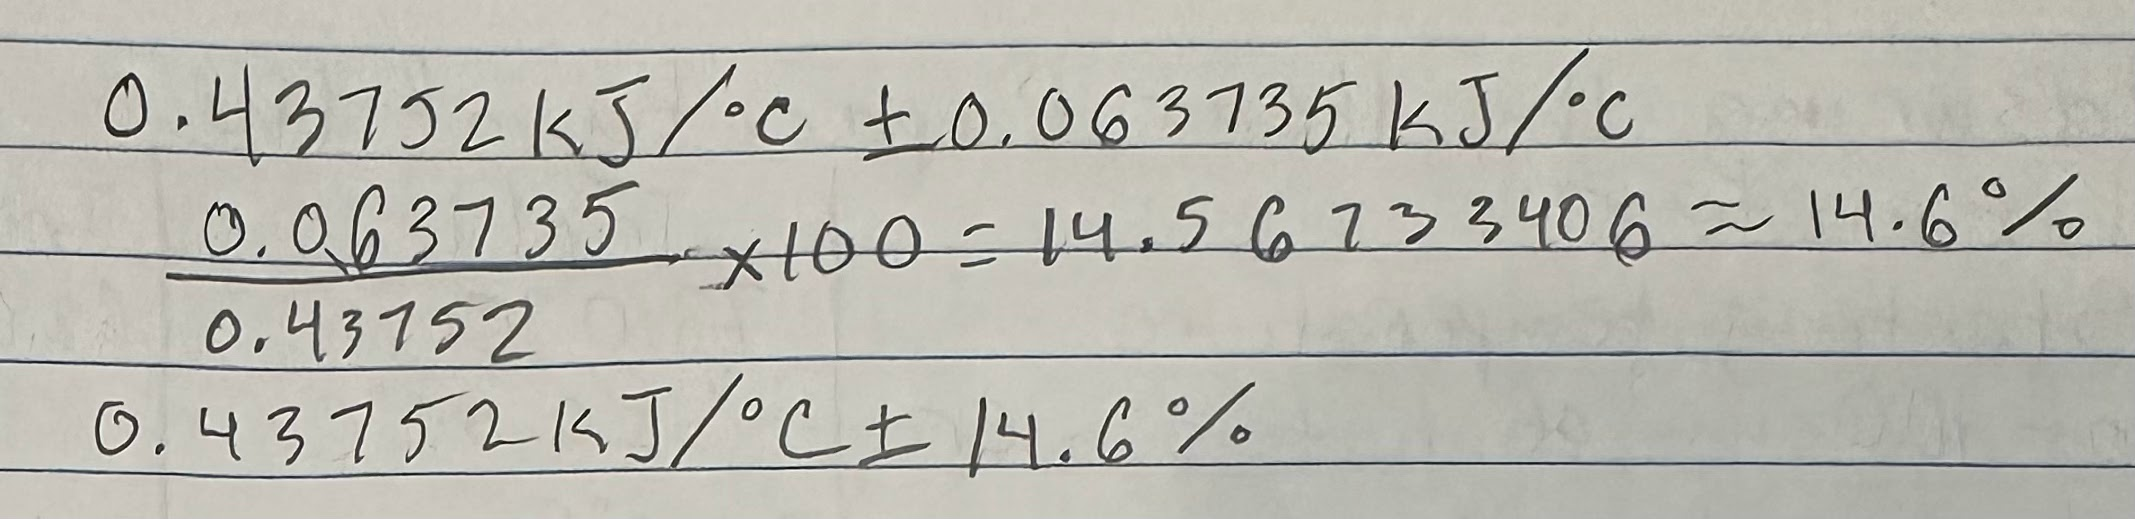 0.43752 kJ/°C ± 0.063735 kJ/°C
0.063735 / 0.43752 × 100 = 14.56733406 ≈ 14.6%
0.43752 kJ/°C ± 14.6%